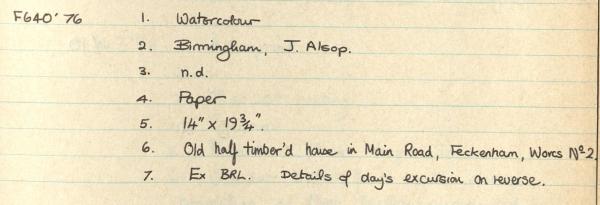 F640'76 1. Watercolour
2. Birmingham, J. Alsop.
3. n.d.
4. Paper
5. 14" x 19¾".
6. Old half timber'd house in Main Road, Feckenham, Worcs Nº2.
7. Ex BRL. Details of day's excursion on reverse.